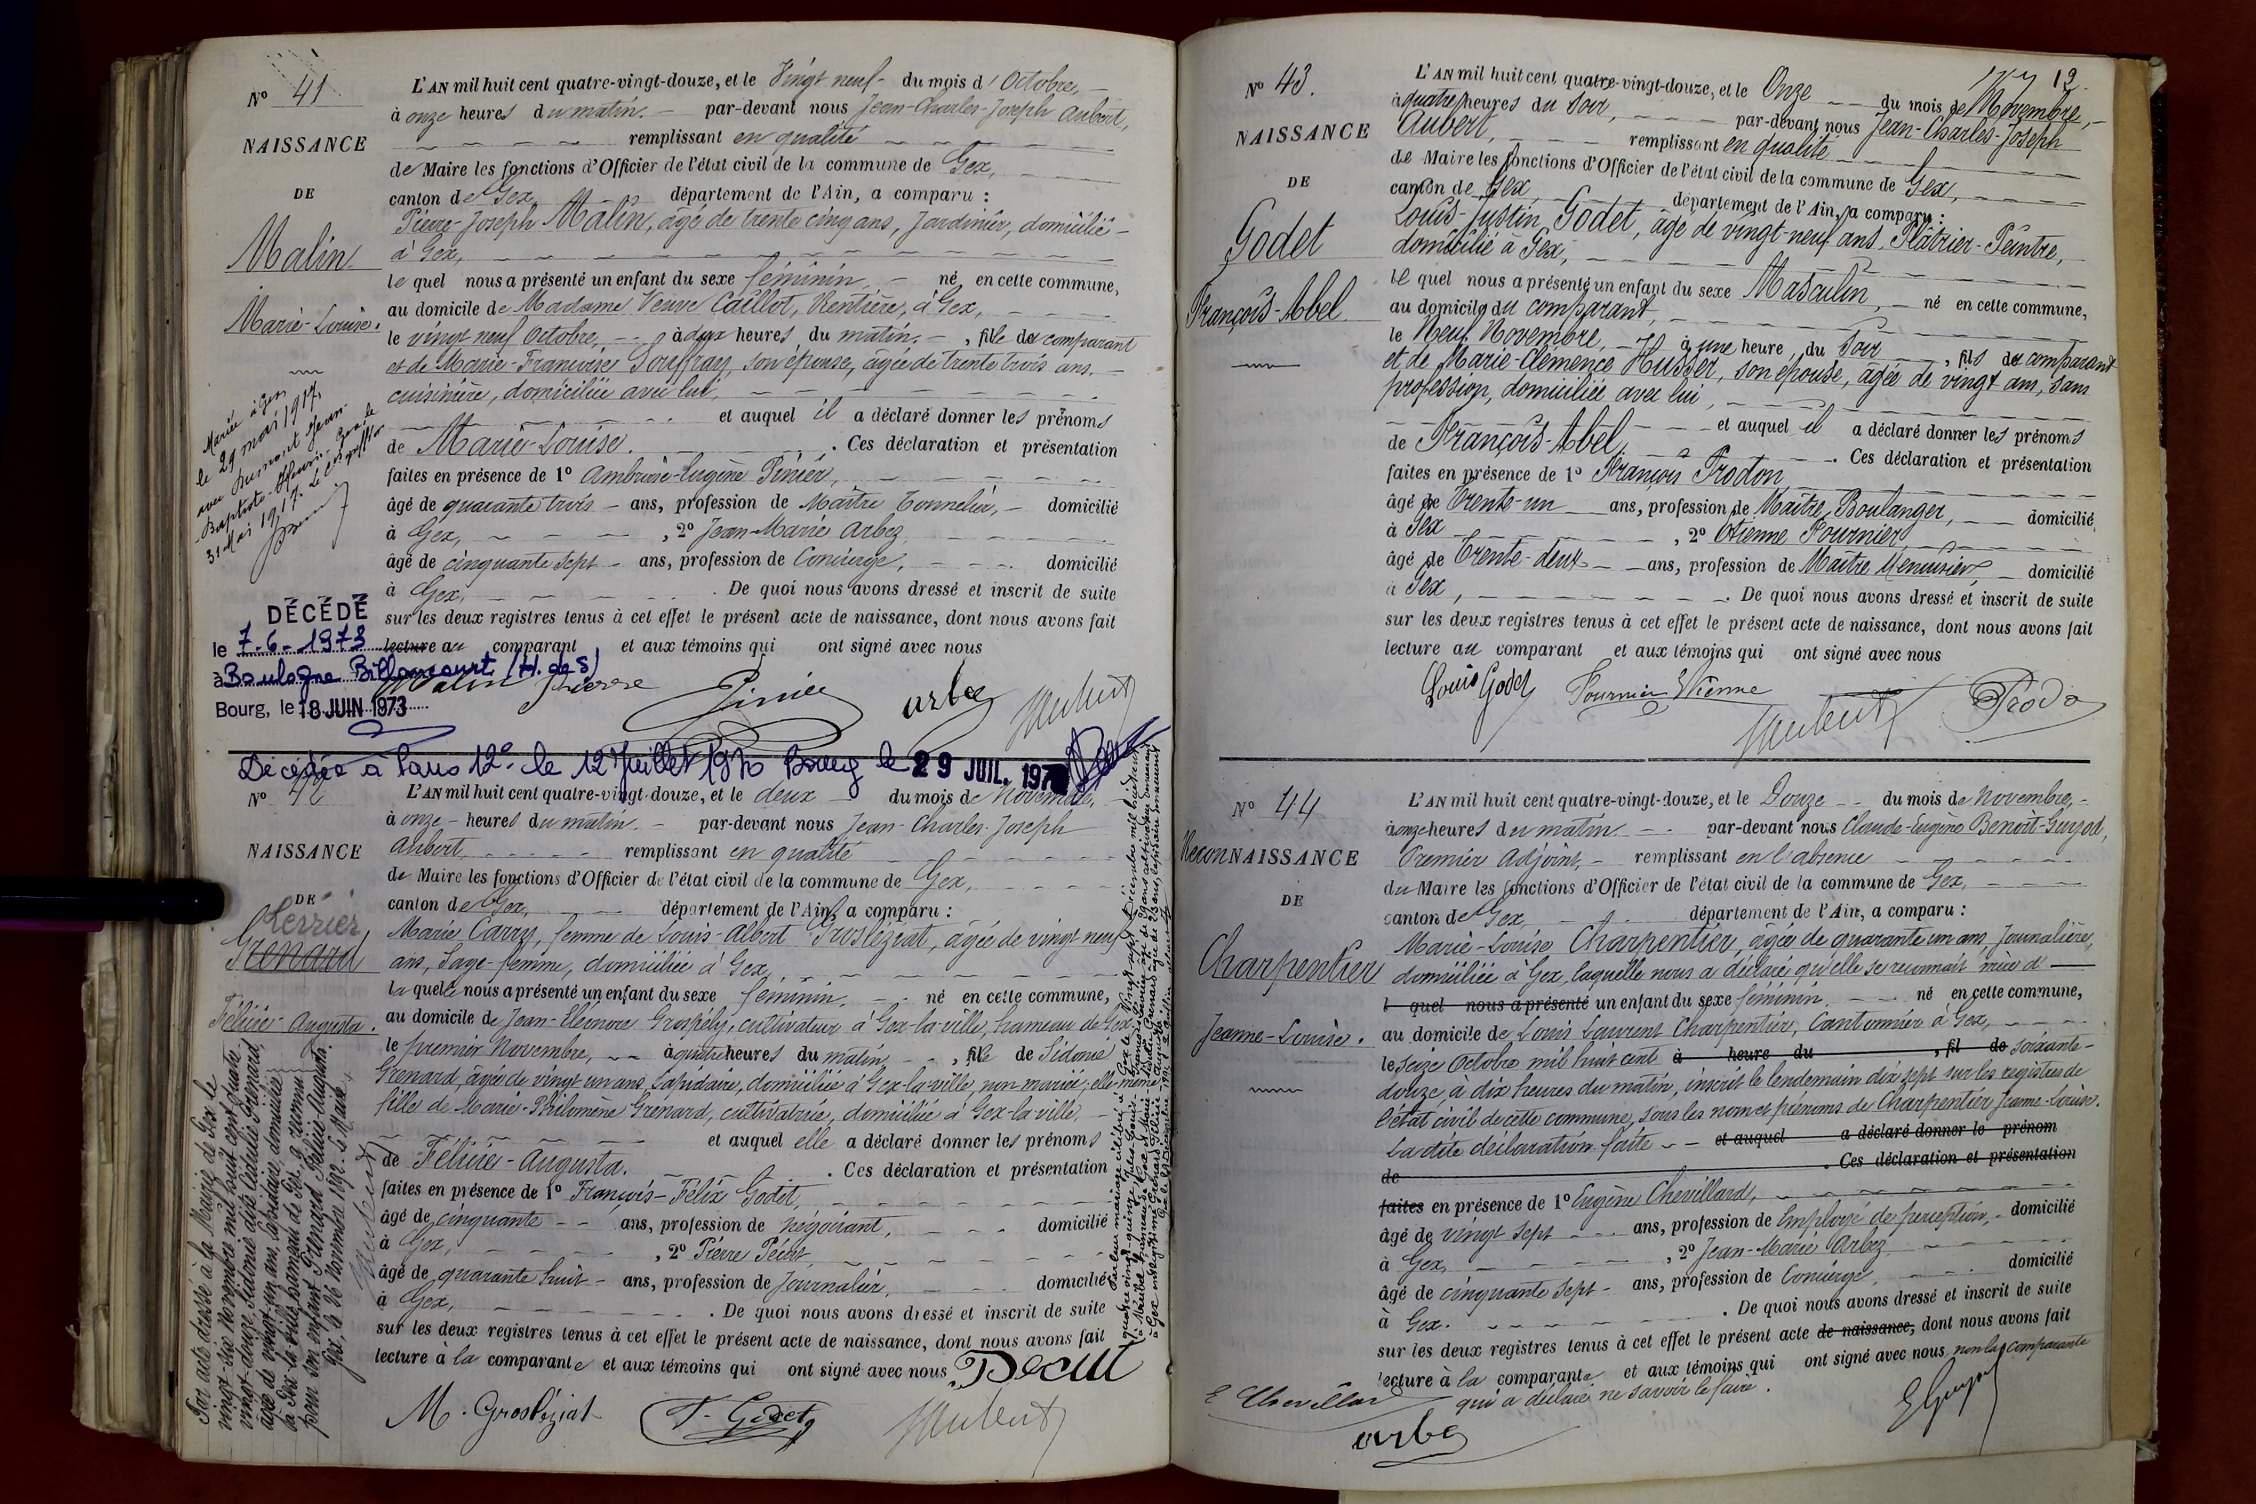 Nº 41
NAISSANCE
DE
Malin
Marie-Louise.
Mariée à Gex
le 29 mai 1917,
avec Jean-
Baptiste-
31 Mai 1917. Le greffier
L'AN mil huit cent quatre-vingt-douze, et le Vingt neuf - du mois d'Octobre, -
à onze heures du matin. - par-devant nous Jean-Charles-Joseph Aubert,
remplissant en qualité
de Maire les fonctions d'Officier de l'état civil de la commune de Gex,
canton de Gex département de l'Ain, a comparu :
Pierre-Joseph Malin, âgé de trente cinq ans, Jardinier, domicilié -
à Gex,
le quel nous a présenté un enfant du sexe féminin, - né en cette commune,
au domicile de Madame Veuve Caillot, Rentière, à Gex,
le vingt neuf Octobre, - à deux heures du matin. - , fille du comparant
et de Marie-Françoise Souffray, son épouse, âgée de trente trois ans, -
cuisinière, domiciliée avec lui,
et auquel il a déclaré donner les prénoms
de Marie-Louise. . Ces déclaration et présentation
faites en présence de 1º Ambroise-Eugène Pinier,
âgé de quarante trois - ans, profession de Maître Tonnelier, - domicilié
à Gex, , 2º Jean-Marie Arbez
âgé de cinquante sept - ans, profession de Concierge, domicilié
à Gex, . De quoi nous avons dressé et inscrit de suite
sur les deux registres tenus à cet effet le présent acte de naissance, dont nous avons fait
lecture au comparant et aux témoins qui ont signé avec nous
DÉCÉDÉ
le 7-6-1973
à Boulogne Billancourt (H. de S)
Bourg, le 18 JUIN 1973
Malin Pierre Pinier arbez JAubert
Décédée à Paris 12e le 12 Juillet 1970 Bourg le 29 JUIL. 1970
Nº 42
NAISSANCE
DE
Perrier
Grenard
Félicie-Augusta.
Par acte dressé à la Mairie de Gex le
vingt-six Novembre mil huit cent quatre-
vingt-douze, Sidonie dite Grenard,
âgée de vingt-un ans, Lapidaire, domiciliée
à Gex-la-ville, hameau de Gex, a reconnu
pour son enfant Grenard Félicie-Augusta.
Gex, le 26 Novembre 1892. Le Maire,
JAubert
L'AN mil huit cent quatre-vingt-douze, et le deux du mois de Novembre,
à onze - heures du matin. - par-devant nous Jean-Charles-Joseph
Aubert remplissant en qualité
de Maire les fonctions d'Officier de l'état civil de la commune de Gex,
canton de Gex, département de l'Ain, a comparu :
Marie Carry, femme de Louis-Albert Grosléziat, âgée de vingt neuf
ans, Sage-femme, domiciliée à Gex,
la quelle nous a présenté un enfant du sexe féminin. - né en cette commune,
au domicile de Jean-Eléonore Grospély, cultivateur à Gex-la-ville, hameau de Gex
le premier Novembre, - à quatre heures du matin - , fille de Sidonie
Grenard, âgée de vingt un ans, Lapidaire, domiciliée à Gex-la-ville, non mariée; elle même
fille de Marie-Philomène Grenard, cultivatrice, domiciliée à Gex-la-ville, -
et auquel elle a déclaré donner les prénoms
de Félicie-Augusta. . Ces déclaration et présentation
faites en présence de 1º François-Félix Godet,
âgé de cinquante - ans, profession de négociant, domicilié
à Gex, , 2º Pierre Pécut,
âgé de quarante huit - ans, profession de Journalier, domicilié
à Gex, . De quoi nous avons dressé et inscrit de suite
sur les deux registres tenus à cet effet le présent acte de naissance, dont nous avons fait
lecture à la comparante et aux témoins qui ont signé avec nous
Pecut
M. Grosléziat F. Godet JAubert
Nº 43.
NAISSANCE
DE
Godet
François-Abel
12
L'AN mil huit cent quatre-vingt-douze, et le Onze du mois de Novembre, -
à quatre heures du soir, par-devant nous Jean-Charles-Joseph
Aubert, remplissant en qualité
de Maire les fonctions d'Officier de l'état civil de la commune de Gex,
canton de Gex département de l'Ain, a comparu :
Louis-Justin Godet, âgé de vingt-neuf ans, Plâtrier-Peintre,
domicilié à Gex,
le quel nous a présenté un enfant du sexe Masculin, - né en cette commune,
au domicile du comparant,
le Neuf Novembre, - à une heure du soir , fils du comparant
et de Marie-Clémence Husser, son épouse, âgée de vingt ans, sans
profession, domiciliée avec lui,
et auquel il a déclaré donner les prénoms
de François-Abel . Ces déclaration et présentation
faites en présence de 1º François Prodon
âgé de Trente-un ans, profession de Maître Boulanger, domicilié
à Gex , 2º Etienne Fournier
âgé de Trente-deux ans, profession de Maître Menuisier, domicilié
à Gex, . De quoi nous avons dressé et inscrit de suite
sur les deux registres tenus à cet effet le présent acte de naissance, dont nous avons fait
lecture au comparant et aux témoins qui ont signé avec nous
Louis Godet Fournier Etienne JAubert Prodon
Nº 44
ReconNAISSANCE
DE
Charpentier
Jeanne-Louise.
L'AN mil huit cent quatre-vingt-douze, et le Douze - du mois de Novembre, -
à onze heures du matin - par-devant nous Claude-Eugène Benoit-Guyod,
Premier Adjoint, - remplissant en l'absence
du Maire les fonctions d'Officier de l'état civil de la commune de Gex,
canton de Gex, département de l'Ain, a comparu :
Marie-Louise Charpentier, âgée de quarante un ans, Journalière,
domiciliée à Gex, laquelle nous a déclaré qu'elle se reconnait mère d'
l quel nous a présenté un enfant du sexe féminin. né en cette commune,
au domicile de Louis Laurent Charpentier, Cantonnier à Gex,
le seize Octobre mil huit cent à heure du , fil de soixante-
douze, à dix heures du matin, inscrit le lendemain dix sept sur les registres de
l'état civil de cette commune, sous les nom et prénoms de Charpentier Jeanne-Louise.
La dite déclaration faite - et auquel a déclaré donner le prénom
de . Ces déclaration et présentation
faites en présence de 1º Eugène Chevillard,
âgé de vingt sept ans, profession de Employé de perception, - domicilié
à Gex, , 2º Jean-Marie Arbez
âgé de cinquante sept - ans, profession de Concierge, domicilié
à Gex. . De quoi nous avons dressé et inscrit de suite
sur les deux registres tenus à cet effet le présent acte de naissance, dont nous avons fait
lecture à la comparante et aux témoins qui ont signé avec nous, non la comparante
qui a déclaré ne savoir le faire.
E Chevillard arbez